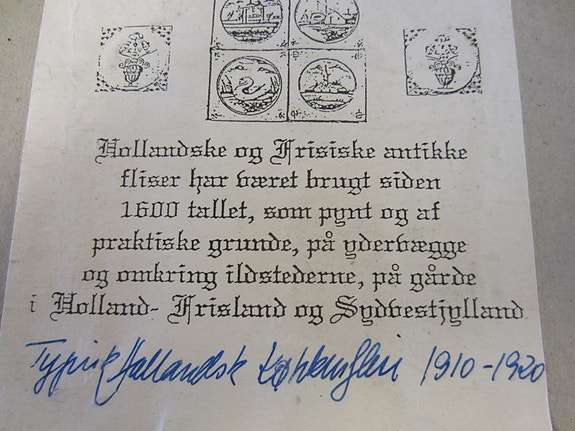 Hollandske og Frisiske antikke
fliser har været brugt siden
1600 tallet, som pynt og af
praktiske grunde, på ydervægge
og omkring ildstederne, på gårde
i Holland- Frisland og Sydvestjylland
Typisk Hollandsk 1910-1920